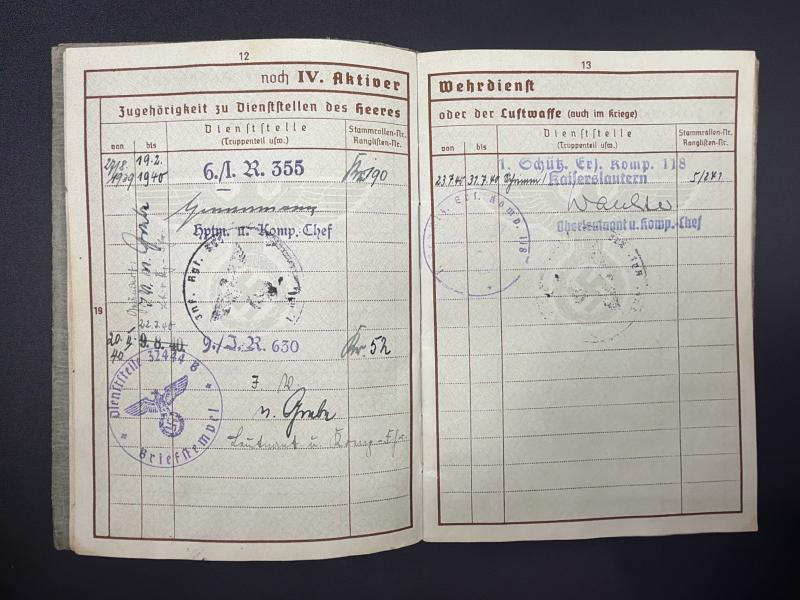 12
noch IV. Aktiver
Zugehörigkeit zu Dienststellen des Heeres
von
bis
Dienststelle
(Truppenteil usw.)
Stammrollen-Nr.
Ranglisten-Nr.
1939
19.2.
1940
6./I. R. 355
Hptm. u. Komp.-Chef
Inf. Rgt.
19
22.7.40
40
9./I.R. 630
Nr. 52
Dienststelle 32444 B
Briefstempel
J V
v. Grabe
Leutnant u. Komp.-
13
Wehrdienst
oder der Luftwaffe (auch im Kriege)
von
bis
Dienststelle
(Truppenteil usw.)
Stammrollen-Nr.
Ranglisten-Nr.
1. Schütz. Ers. Komp. 118
23.7.40
31.7.40
Kaiserslautern
5/241
Oberleutnant u. Komp.-Chef
Ers. Komp. 118